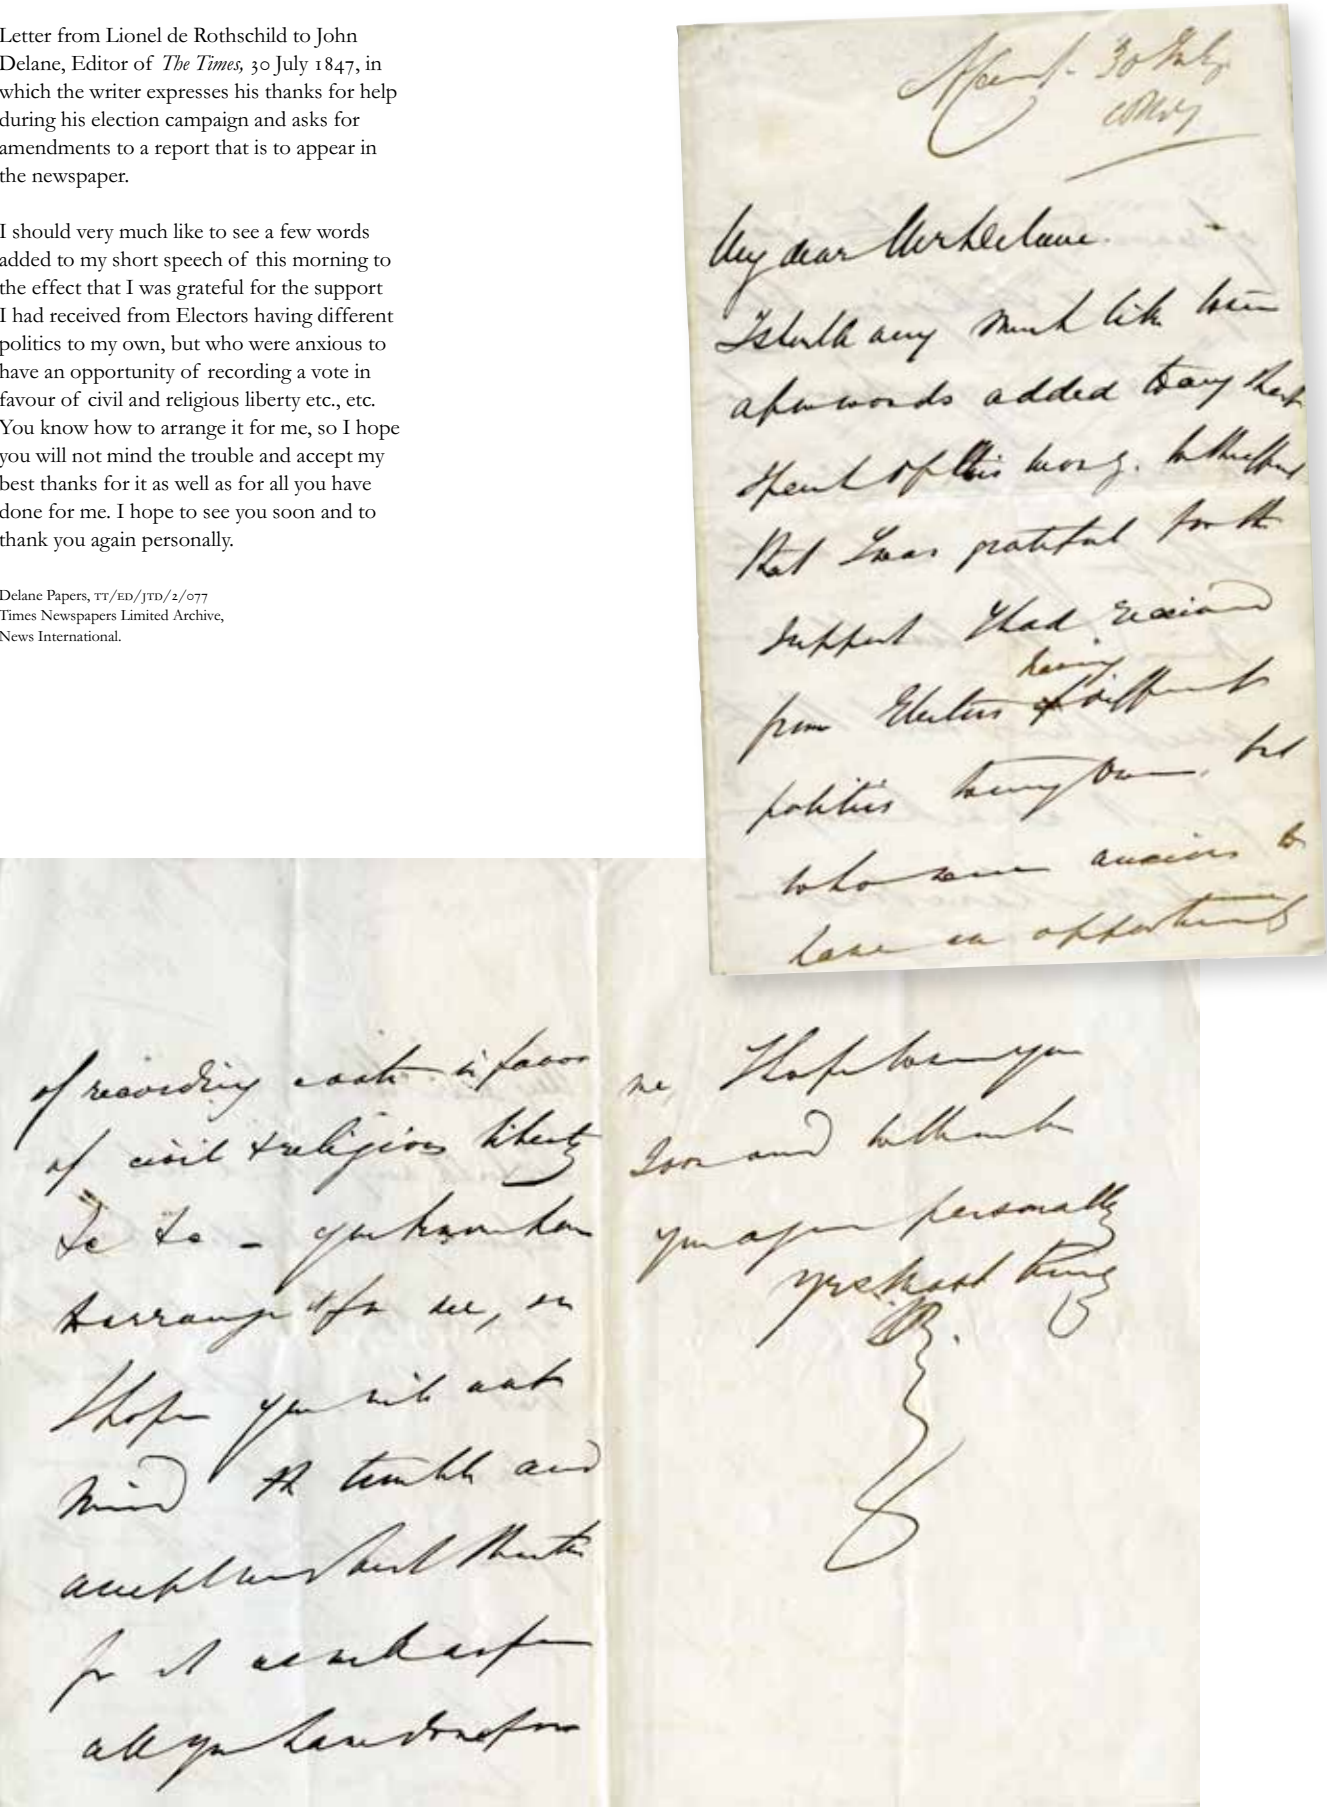 Letter from Lionel de Rothschild to John
Delane, Editor of The Times, 30 July 1847, in
which the writer expresses his thanks for help
during his election campaign and asks for
amendments to a report that is to appear in
the newspaper.
I should very much like to see a few words
added to my short speech of this morning to
the effect that I was grateful for the support
I had received from Electors having different
politics to my own, but who were anxious to
have an opportunity of recording a vote in
favour of civil and religious liberty etc., etc.
You know how to arrange it for me, so I hope
you will not mind the trouble and accept my
best thanks for it as well as for all you have
done for me. I hope to see you soon and to
thank you again personally.
Delane Papers, TT/ED/JTD/2/077
Times Newspapers Limited Archive,
News International.
30 July
My dear Mr Delane.
I should very much like to see
a few words added to my short
speech of this morng. to the effect
that I was grateful for the
support I had received
having
from Electors of different
politics to my own, but
who were anxious to
have an opportunity
of recording a vote in favor
of civil & religious liberty
&c &c – you know how
to arrange it for me, so
I hope you will not
mind the trouble and
accept my best thanks
for it as well as for
all you have done for
me, I hope to see you
soon and to thank
you again personally
yrs most truly